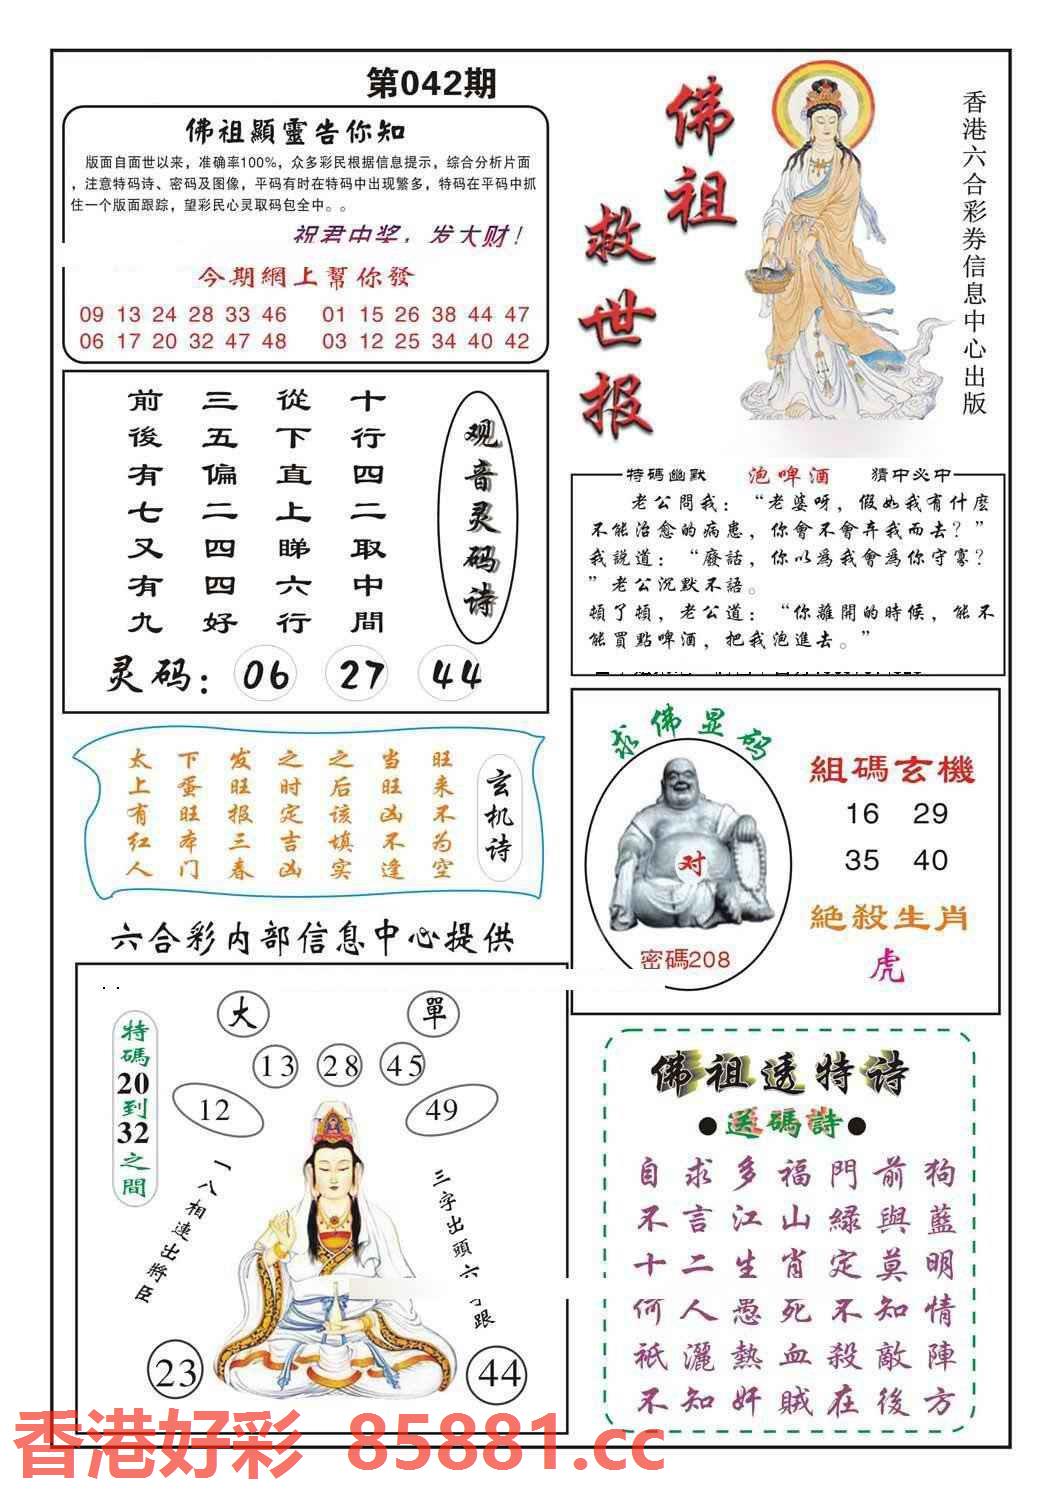 第042期
佛祖顯靈告你知
版面自面世以来，准确率100%，众多彩民根据信息提示，综合分析片面
，注意特码诗、密码及图像，平码有时在特码中出现繁多，特码在平码中抓
住一个版面跟踪，望彩民心灵取码包全中。。
祝君中奖，发大财！
今期網上幫你發
09 13 24 28 33 46 01 15 26 38 44 47
06 17 20 32 47 48 03 12 25 34 40 42
佛祖
救世报
香港六合彩券信息中心出版
前三從十
後五下行
有偏直四
七二上二
又四睇取
有四六中
九好行間
观音灵码诗
灵码：06 27 44
特碼幽默 泡啤酒 猜中必中
老公問我：“老婆呀，假如我有什麽
不能治愈的病患，你會不會弃我而去？”
我説道：“廢話，你以爲我會爲你守寡？
”老公沉默不語。
頓了頓，老公道：“你離開的時候，能不
能買點啤酒，把我泡進去。”
太下发之之当旺
上蛋旺时后旺来
有旺报定该凶不
红本三吉填不为
人门春凶实逢空
玄机诗
求佛显码
对
密碼208
組碼玄機
16 29
35 40
絶殺生肖
虎
六合彩内部信息中心提供
特碼20到32之間
大 單
13 28 45
12 49
一八相連出將臣
三字出頭六
跟
23 44
佛祖透特诗
●送碼詩●
自求多福門前狗
不言江山緑與藍
十二生肖定莫明
何人愚死不知情
祇灑熱血殺敵陣
不知奸賊在後方
香港好彩 85881.cc